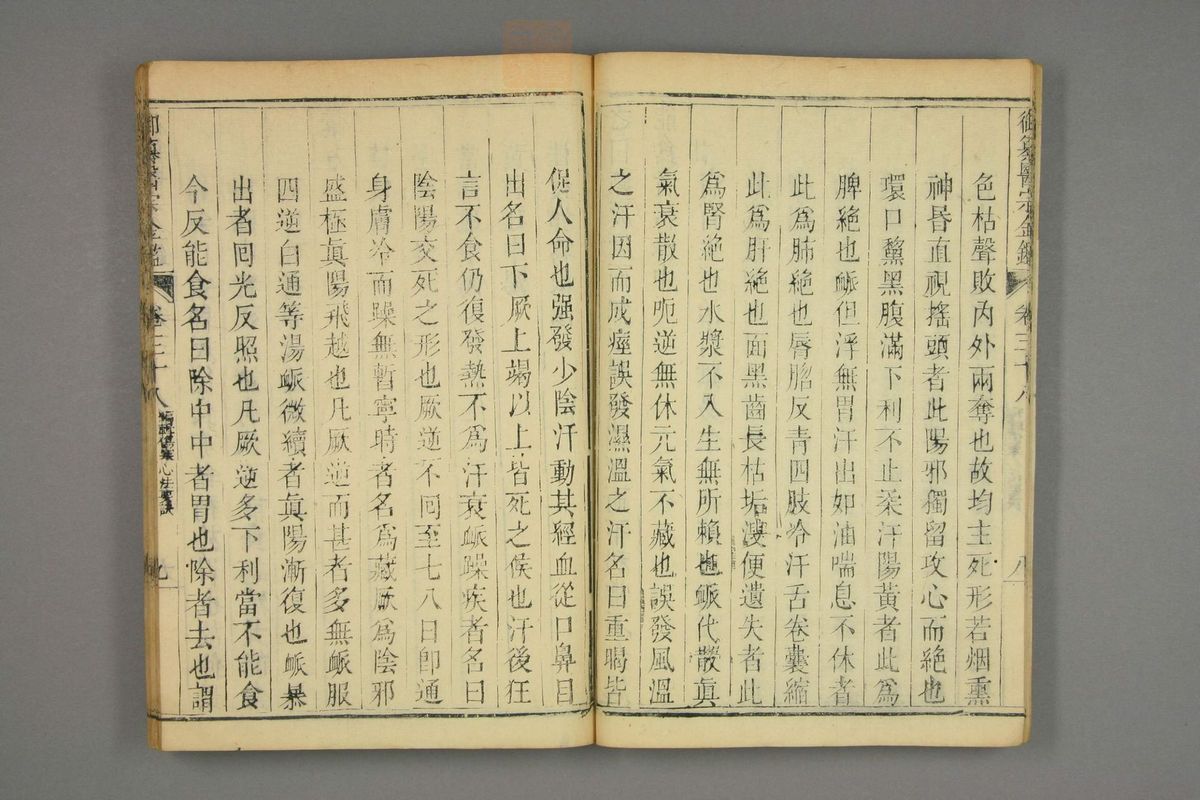 御纂醫宗金鑑 卷三十八 八
色枯聲敗內外兩奪也故均主死形若烟熏
神昏直視搖頭者此陽邪獨留攻心而絕也
環口黧黑腹滿下利不止柔汗陽黃者此爲
脾絕也衇但浮無胃汗出如油喘息不休者
此爲肺絕也唇脗反青四肢冷汗舌卷囊縮
此爲肝絕也面黑齒長枯垢溲便遺失者此
爲腎絕也水漿不入生無所賴也衇代散眞
氣衰散也呃逆無休元氣不藏也誤發風溫
之汗因而成痙誤發濕溫之汗名曰重暍皆
促人命也强發少陰汗動其經血從口鼻目
出名曰下厥上竭以上皆死之候也汗後狂
言不食仍復發熱不爲汗衰衇躁疾者名曰
陰陽交死之形也厥逆不回至七八日卽通
身膚冷而躁無暫寧時者名爲藏厥爲陰邪
盛極眞陽飛越也凡厥逆而甚者多無衇服
四逆白通等湯衇微續者眞陽漸復也衇暴
出者回光反照也凡厥逆多下利當不能食
今反能食名曰除中中者胃也除者去也謂
御纂醫宗金鑑 卷三十八 編輯傷寒心法要訣 九